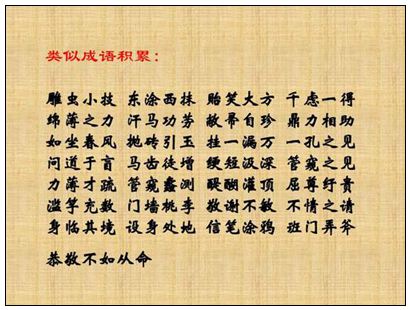 类似成语积累：
雕虫小技 东涂西抹 贻笑大方 千虑一得
绵薄之力 汗马功劳 敝帚自珍 鼎力相助
如坐春风 抛砖引玉 挂一漏万 一孔之见
问道于盲 马齿徒增 绠短汲深 管窥之见
力薄才疏 管窥蠡测 醍醐灌顶 屈尊纡贵
滥竽充数 门墙桃李 敬谢不敏 不情之请
身临其境 设身处地 信笔涂鸦 班门弄斧
恭敬不如从命